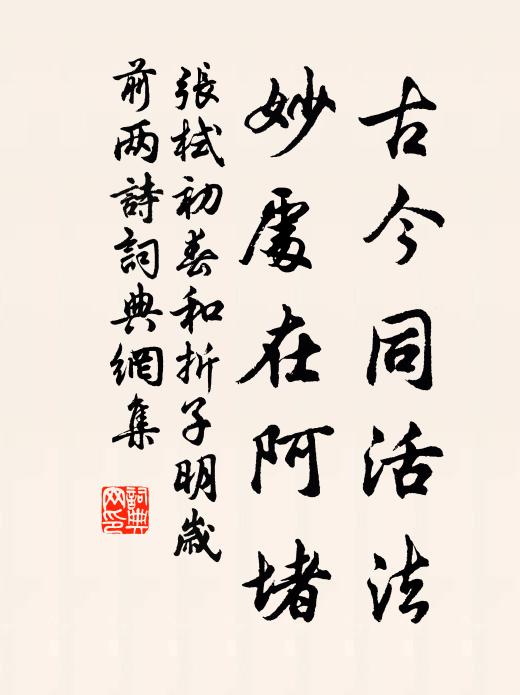 古今同活法
妙處在阿堵
張栻初春和折子明歲
前两詩詞典網集
詞典
网印